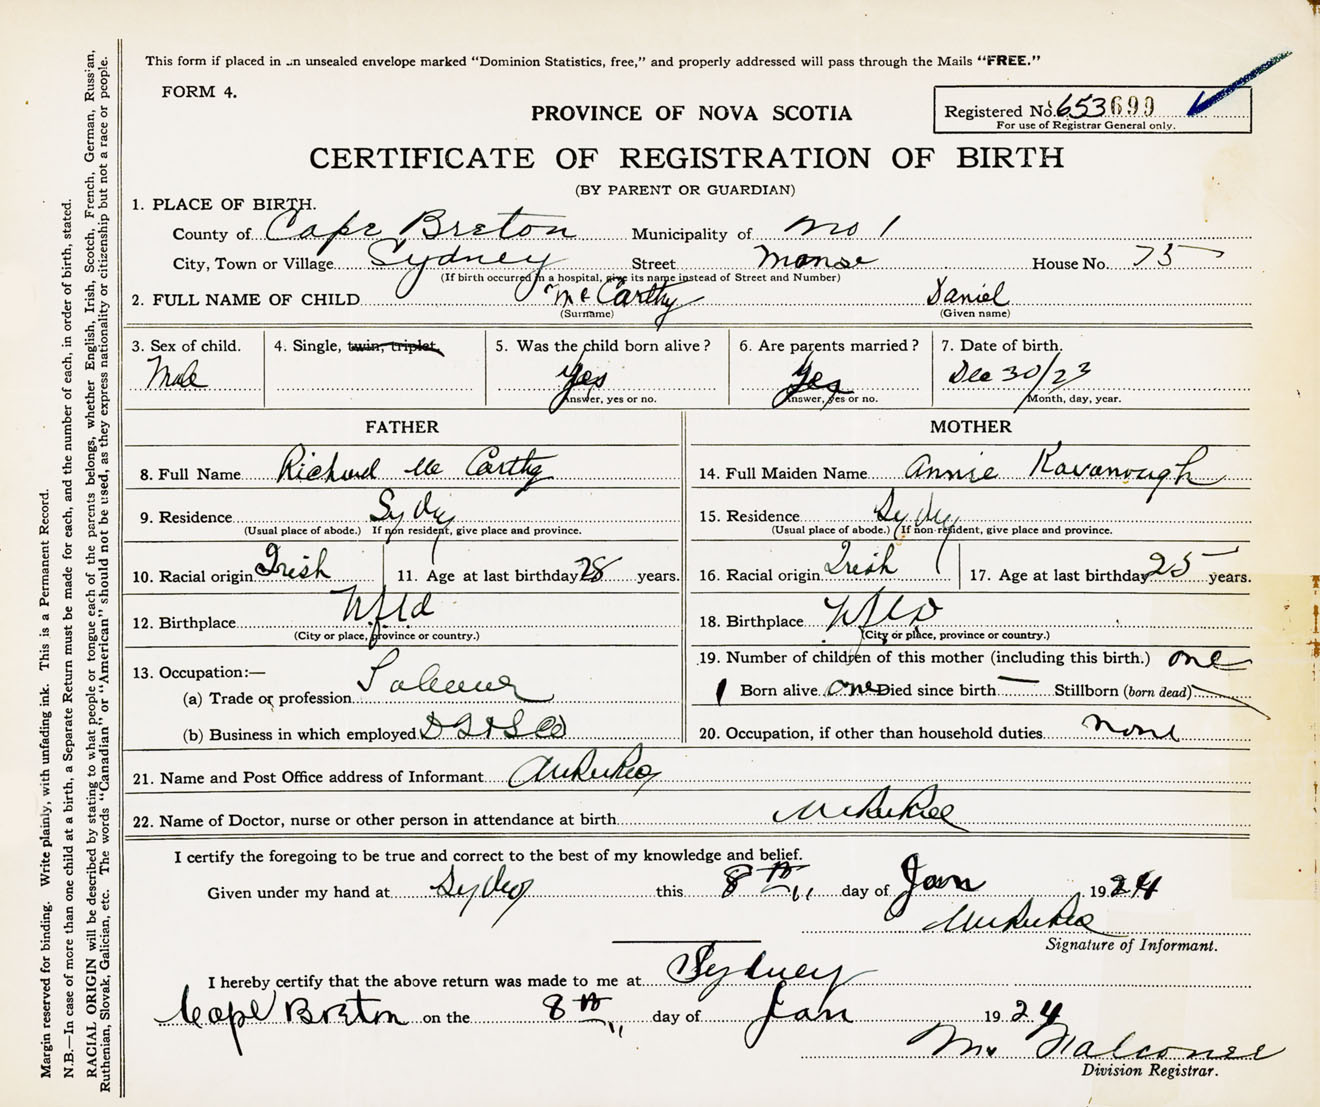 This form if placed in an unsealed envelope marked "Dominion Statistics, free," and properly addressed will pass through the Mails "FREE."
FORM 4.
PROVINCE OF NOVA SCOTIA
Registered No. 653699
For use of Registrar General only.
CERTIFICATE OF REGISTRATION OF BIRTH
(BY PARENT OR GUARDIAN)
1. PLACE OF BIRTH.
County of Cape Breton Municipality of No 1
City, Town or Village Sydney Street Manse House No. 75
(If birth occurred in a hospital, give its name instead of Street and Number)
2. FULL NAME OF CHILD McCarthy Daniel
(Surname) (Given name)
3. Sex of child. 4. Single, twin, triplet. 5. Was the child born alive? 6. Are parents married? 7. Date of birth.
Male Yes Yes Dec 30/23
Answer, yes or no. Answer, yes or no. Month, day, year.
FATHER
8. Full Name Richard McCarthy
9. Residence Sydney
(Usual place of abode.) If non resident, give place and province.
10. Racial origin Irish 11. Age at last birthday 28 years.
12. Birthplace Nfld
(City or place, province or country.)
13. Occupation:—
(a) Trade or profession
(b) Business in which employed
MOTHER
14. Full Maiden Name Annie Kavanaugh
15. Residence Sydney
(Usual place of abode.) If non-resident, give place and province.
16. Racial origin Irish 17. Age at last birthday 25 years.
18. Birthplace Nfld
(City or place, province or country.)
19. Number of children of this mother (including this birth.) one
1 Born alive one Died since birth — Stillborn (born dead)
20. Occupation, if other than household duties none
21. Name and Post Office address of Informant
22. Name of Doctor, nurse or other person in attendance at birth
I certify the foregoing to be true and correct to the best of my knowledge and belief.
Given under my hand at Sydney this 8th day of Jan 1924
Signature of Informant.
I hereby certify that the above return was made to me at Sydney
Cape Breton on the 8th day of Jan 1924
Falconer
Division Registrar.
Margin reserved for binding. Write plainly, with unfading ink. This is a Permanent Record.
N.B.—In case of more than one child at a birth, a Separate Return must be made for each, and the number of each, in order of birth, stated.
RACIAL ORIGIN will be described by stating to what people or tongue each of the parents belongs, whether English, Irish, Scotch, French, German, Russian,
Ruthenian, Slovak, Galician, etc. The words "Canadian" or "American" should not be used, as they express nationality or citizenship but not a race or people.